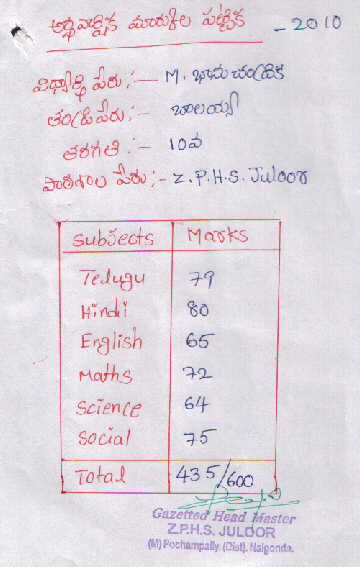 అర్థవార్షిక మార్కుల పట్టిక - 2010
విద్యార్థి పేరు :- M. భానుచంద్రిక
తండ్రి పేరు :- బాలయ్య
తరగతి :- 10వ
పాఠశాల పేరు :- Z.P.H.S. Juloor
Subjects Marks
Telugu 79
Hindi 80
English 65
Maths 72
Science 64
Social 75
Total 435/600
Gazetted Head Master
Z.P.H.S. JULOOR
(M) Pochampally, (Dist). Nalgonda.